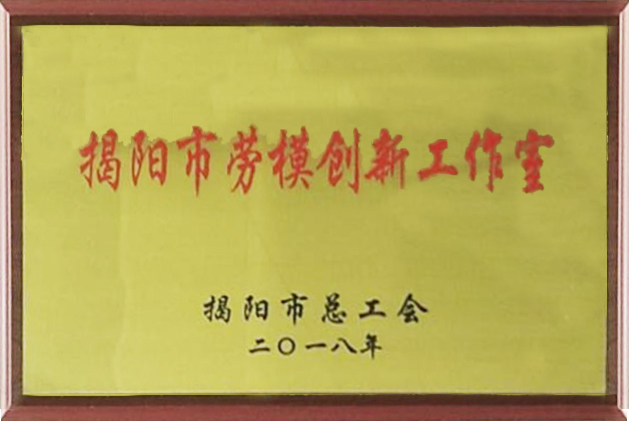 揭阳市劳模创新工作室
揭阳市总工会
二〇一八年